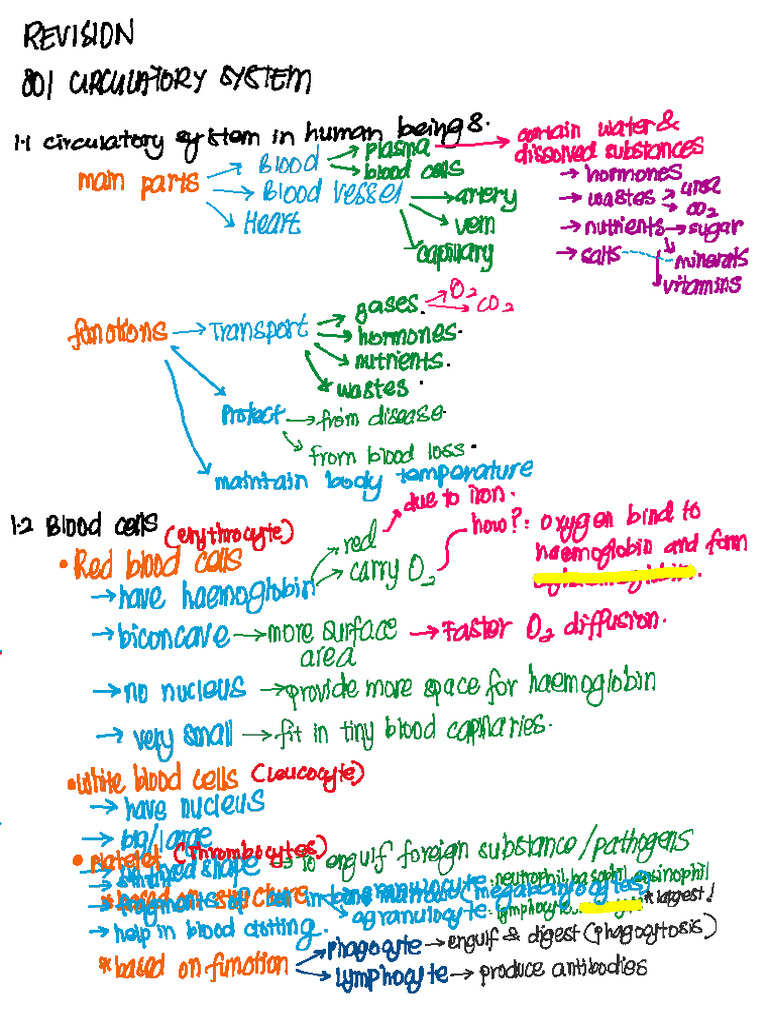 REVISION
801 CIRCULATORY SYSTEM
1.1 circulatory system in human beings.
main parts → Blood → plasma → contain water & dissolved substances
→ blood cells
→ hormones
→ wastes → urea
→ CO2
→ nutrients → sugar
→ minerals
→ vitamins
→ salts
→ Blood Vessel → artery
→ vein
→ capillary
→ Heart
functions → Transport → gases. → O2
→ CO2
→ hormones.
→ nutrients.
→ wastes.
→ Protect → from disease.
→ from blood loss.
→ maintain body temperature
1.2 Blood cells
• Red blood cells (erythrocyte)
→ have haemoglobin → red → due to iron.
→ carry O2 how?: oxygen bind to
haemoglobin and form
→ biconcave → more surface area → Faster O2 diffusion.
→ no nucleus → provide more space for haemoglobin
→ very small → fit in tiny blood capillaries.
• White blood cells (leucocyte)
→ have nucleus
→ big/large
→ no fixed shape → to engulf foreign substance/pathogens
• platelet (thrombocytes)
* based on structure → granulocyte. neutrophil, basophil, eosinophil
→ agranulocyte. lymphocyte, * largest!
→ help in blood clotting.
* based on function → phagocyte → engulf & digest (phagocytosis)
→ lymphocyte → produce antibodies